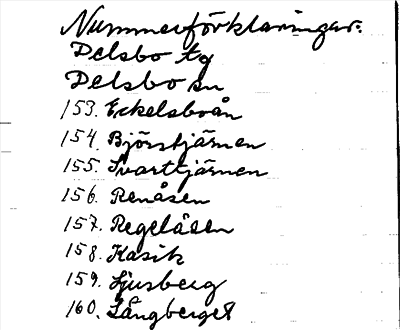 Nummerförklaringar:
Delsbo tg
Delsbo sn
153. Eckelsboån
154. Björstjärnen
155. Svarttjärnen
156. Renåsen
157. Regelåsen
158. Kasik
159. Ljusberg
160. Långberget